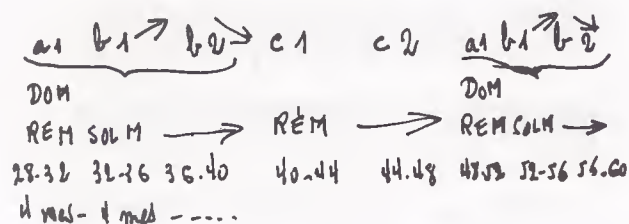 a1 b1 ↗ b2 ↘ c1 c2 a1 b1 ↗ b2 ↘
DOM DOM
REM SOLM → RÉM → REM SOLM →
28-32 32-36 36-40 40-44 44-48 48-52 52-56 56-60
4 mes - 4 mes - ....